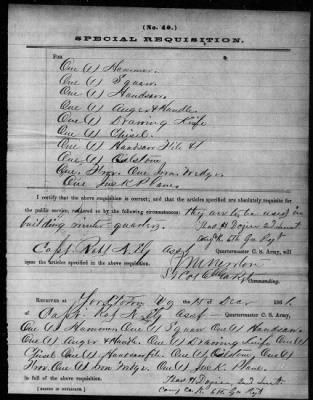 (No. 40.)
SPECIAL REQUISITION.
For
One (1) Hammer.
One (1) Square.
One (1) Handsaw.
One (1) Auger & Handle.
One (1) Drawing Knife
One (1) Chisel.
One (1) Handsaw File
One (1)
One Frow. One Iron Wedge.
One Jack Plane.
I certify that the above requisition is correct; and that the articles specified are absolutely requisite for
the public service, rendered so by the following circumstances: they are to be used in
building winter quarters. Thos H Dozier 2d Lieut
Co. K. 6th Ga Regt
Capt. Robt Asst Quartermaster C. S. Army, will
upon the articles specified in the above requisition.
Commanding.
Received at Yorktown Va 15 Dec 1861,
of Capt. Asst Quartermaster C. S. Army,
One (1) Hammer One (1) Square One (1) Handsaw.
One (1) Auger & Handle. One (1) Drawing Knife. One (1)
Chisel One (1) Handsaw file. One (1) One (1)
Frow. One (1) Iron Wedge. One (1) Jack Plane.
In full of the above requisition. Thos H Dozier 2nd Lieut
[SIGNED IN DUPLICATE.] Comg Co. K. 6th Ga Regt